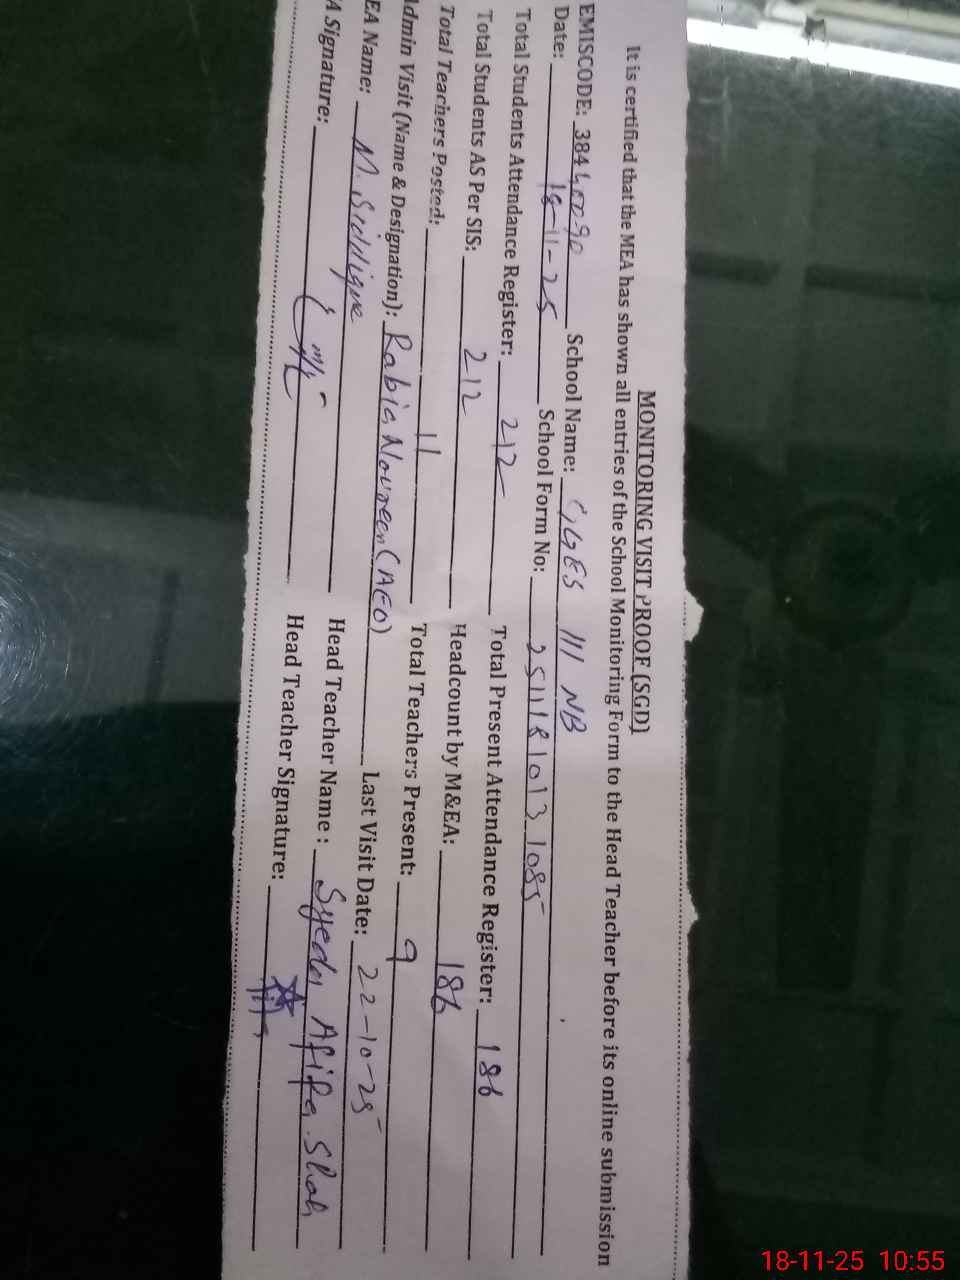 MONITORING VISIT PROOF (SGD)
It is certified that the MEA has shown all entries of the School Monitoring Form to the Head Teacher before its online submission
EMISCODE: 38440090 School Name: GGES 111 NB
Date: 18-11-25 School Form No: 2511181013 1085
Total Students Attendance Register: 212 Total Present Attendance Register: 186
Total Students AS Per SIS: 212 Headcount by M&EA: 186
Total Teachers Posted: 11 Total Teachers Present: 9
Admin Visit (Name & Designation): Rabia Noureen (AEO) Last Visit Date: 22-10-25
EA Name: M. Siddique Head Teacher Name: Syeda Afifa Shah
A Signature: Head Teacher Signature:
18-11-25 10:55